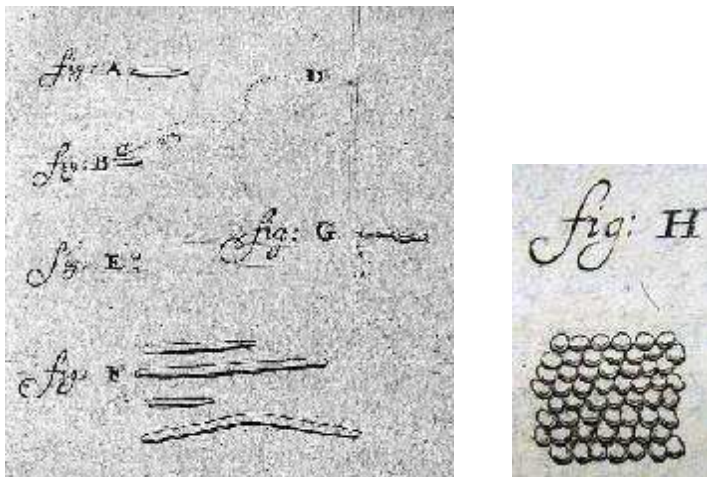 fig: A
D
fig: B
C
fig: G
fig: E
fig: F
fig: H